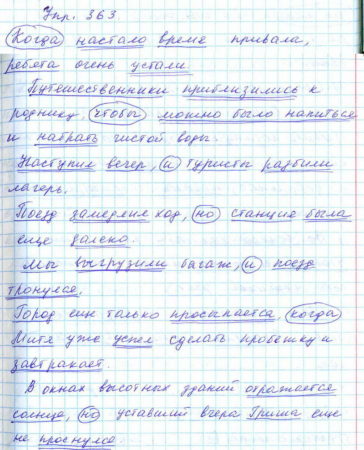 Упр. 363
Когда настало время привала,
ребята очень устали.
Путешественники приблизились к
роднику, чтобы можно было напиться
и набрать чистой воды.
Наступил вечер, и туристы разбили
лагерь.
Поезд замедлил ход, но станция была
еще далеко.
Мы выгрузили багаж, и поезд
тронулся.
Город еще только просыпается, когда
Митя уже успел сделать пробежку и
завтракает.
В окнах высотных зданий отражается
солнце, но уставший вчера Гриша еще
не проснулся.